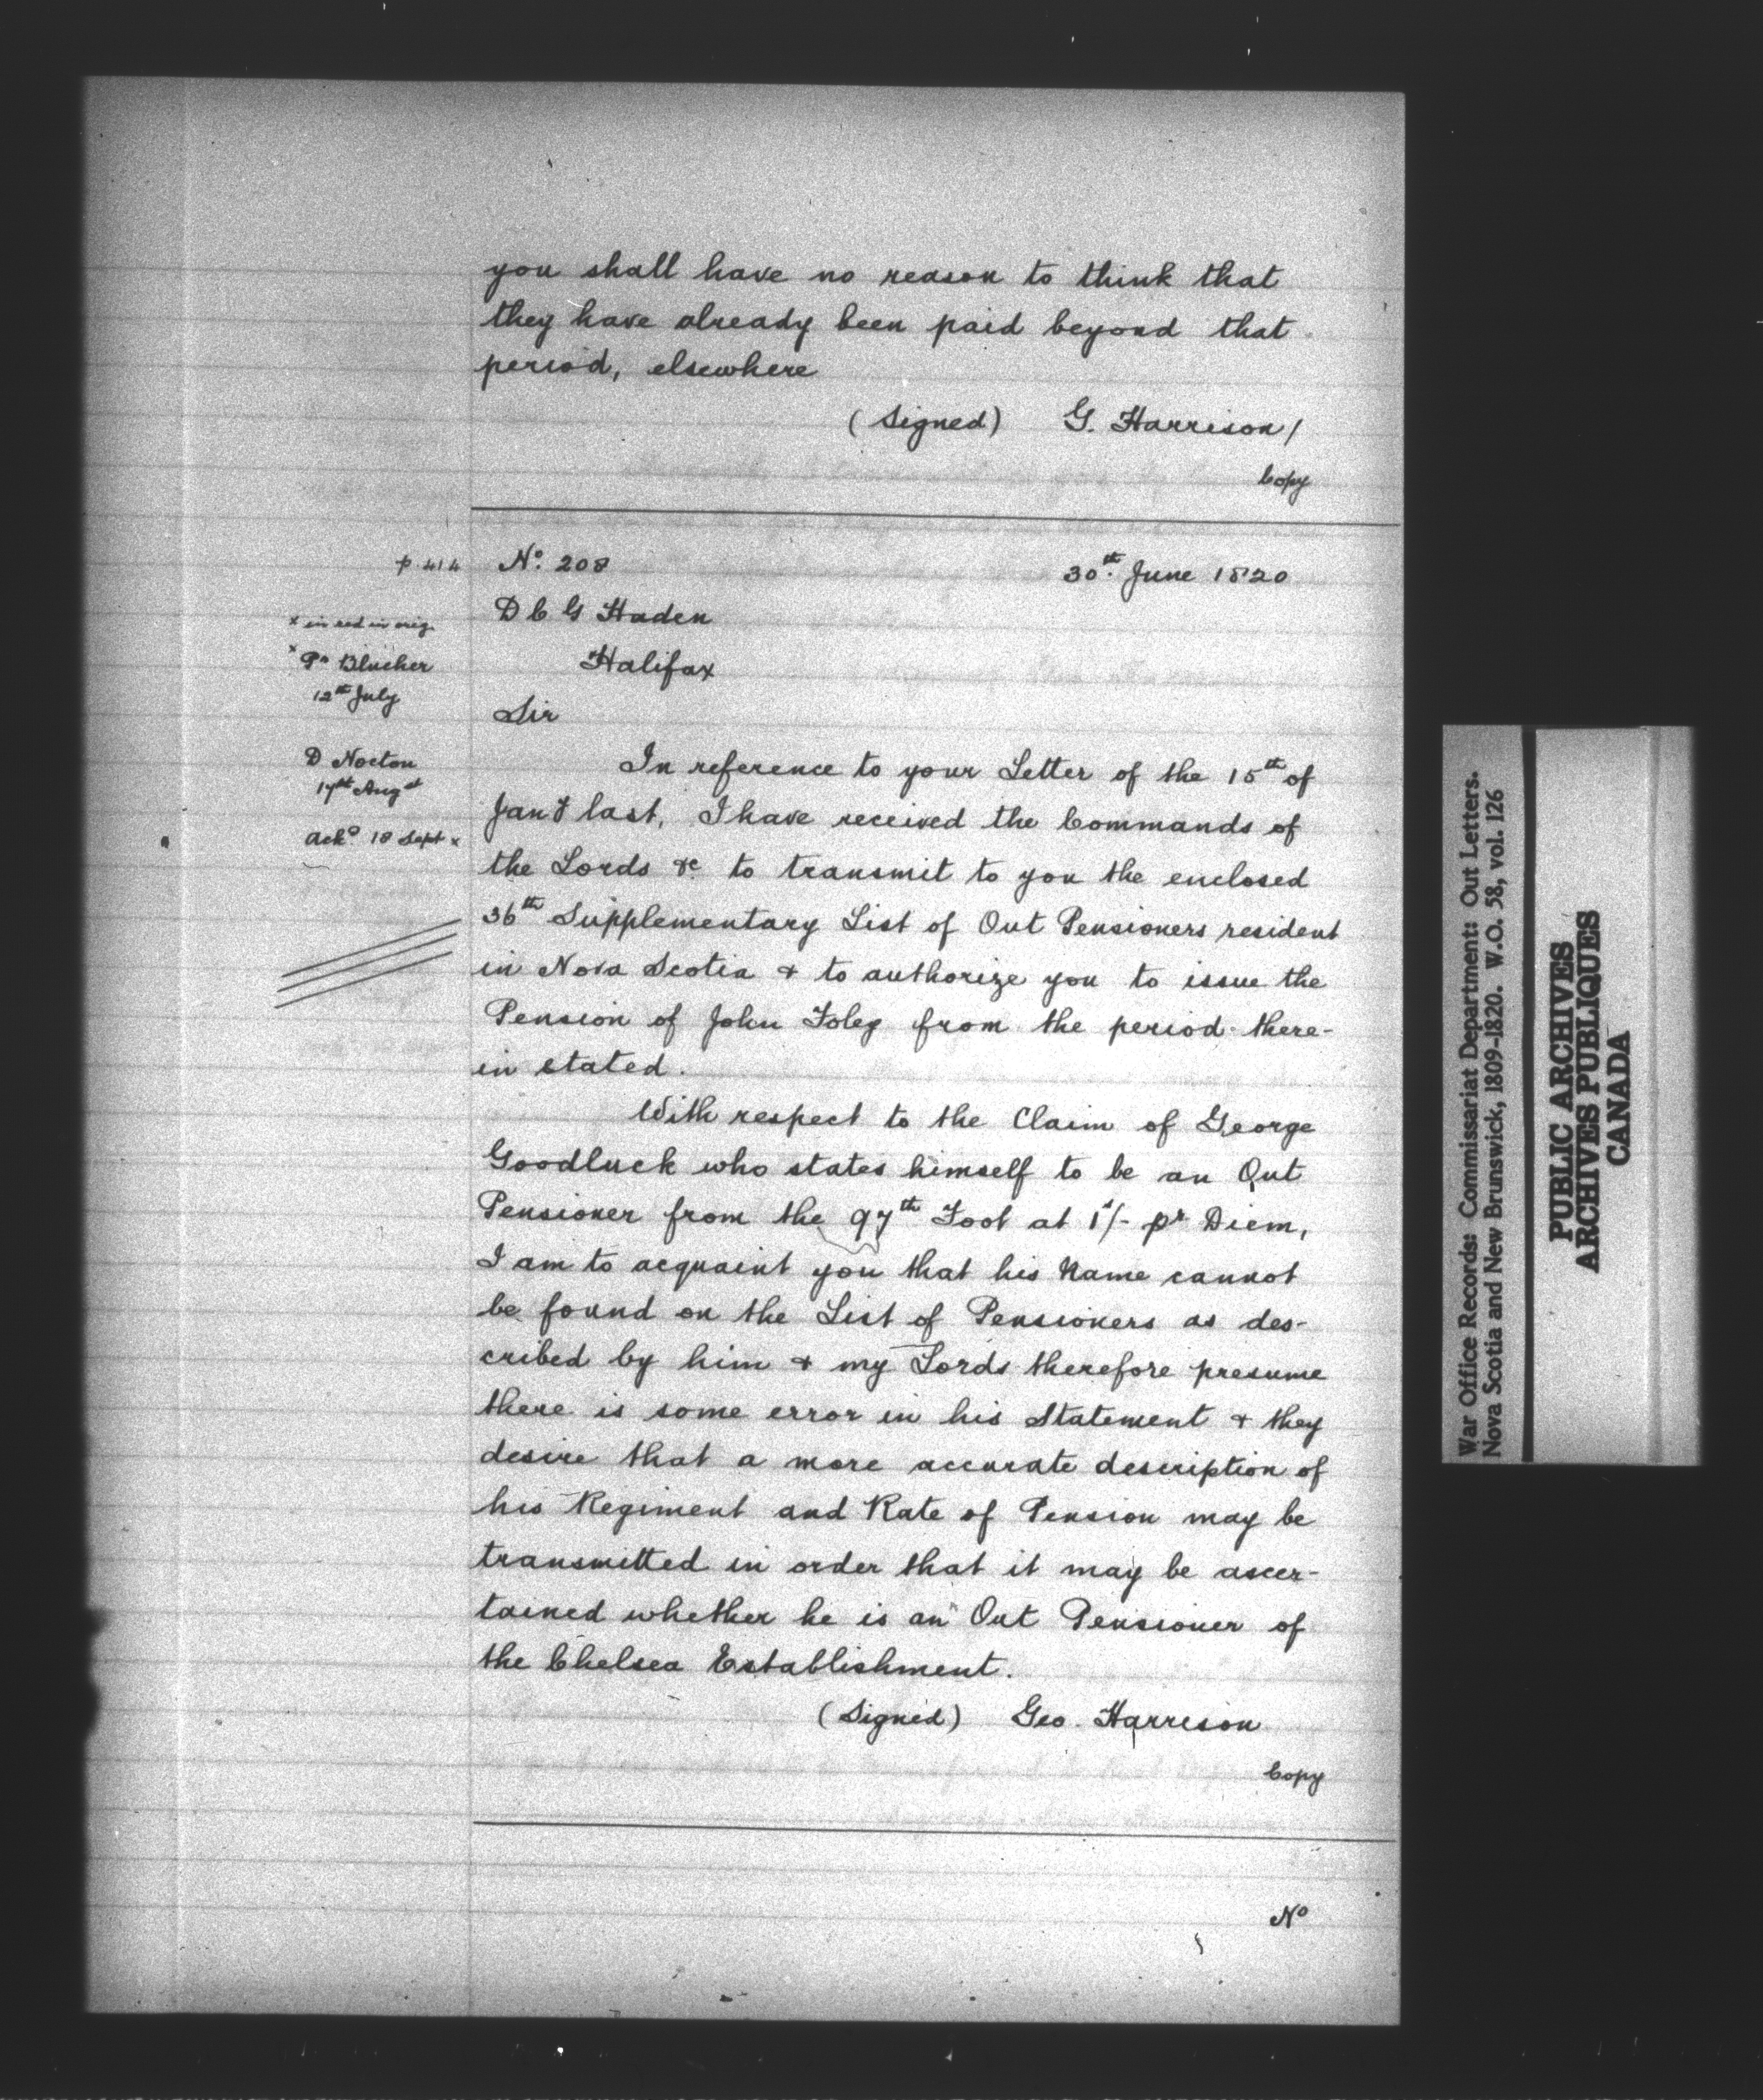 you shall have no reason to think that
they have already been paid beyond that
period, elsewhere
(Signed) G. Harrison/
Copy
p. 414
No. 208
30th. June 1820
D C G Haden
Halifax
x in red in orig.
x Pr Blucher
12th July
D Norton
17th Augst
Ackd 18 Sept x
Sir
In reference to your Letter of the 15th of
Jany last, I have received the Commands of
the Lords &c to transmit to you the enclosed
36th Supplementary List of Out Pensioners resident
in Nova Scotia & to authorize you to issue the
Pension of John Foley from the period there-
in stated.
With respect to the Claim of George
Goodluck who states himself to be an Out
Pensioner from the 97th Foot at 1s/- pr Diem,
I am to acquaint you that his Name cannot
be found on the List of Pensioners as des-
cribed by him & my Lords therefore presume
there is some error in his Statement & they
desire that a more accurate description of
his Regiment and Rate of Pension may be
transmitted in order that it may be ascer-
tained whether he is an Out Pensioner of
the Chelsea Establishment.
(Signed) Geo. Harrison
Copy
No
War Office Records: Commissariat Department: Out Letters.
Nova Scotia and New Brunswick, 1809-1820. W.O. 58, vol. 126
PUBLIC ARCHIVES
ARCHIVES PUBLIQUES
CANADA